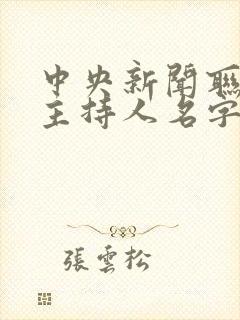 中央新聞聯
主持人名字
張雲松